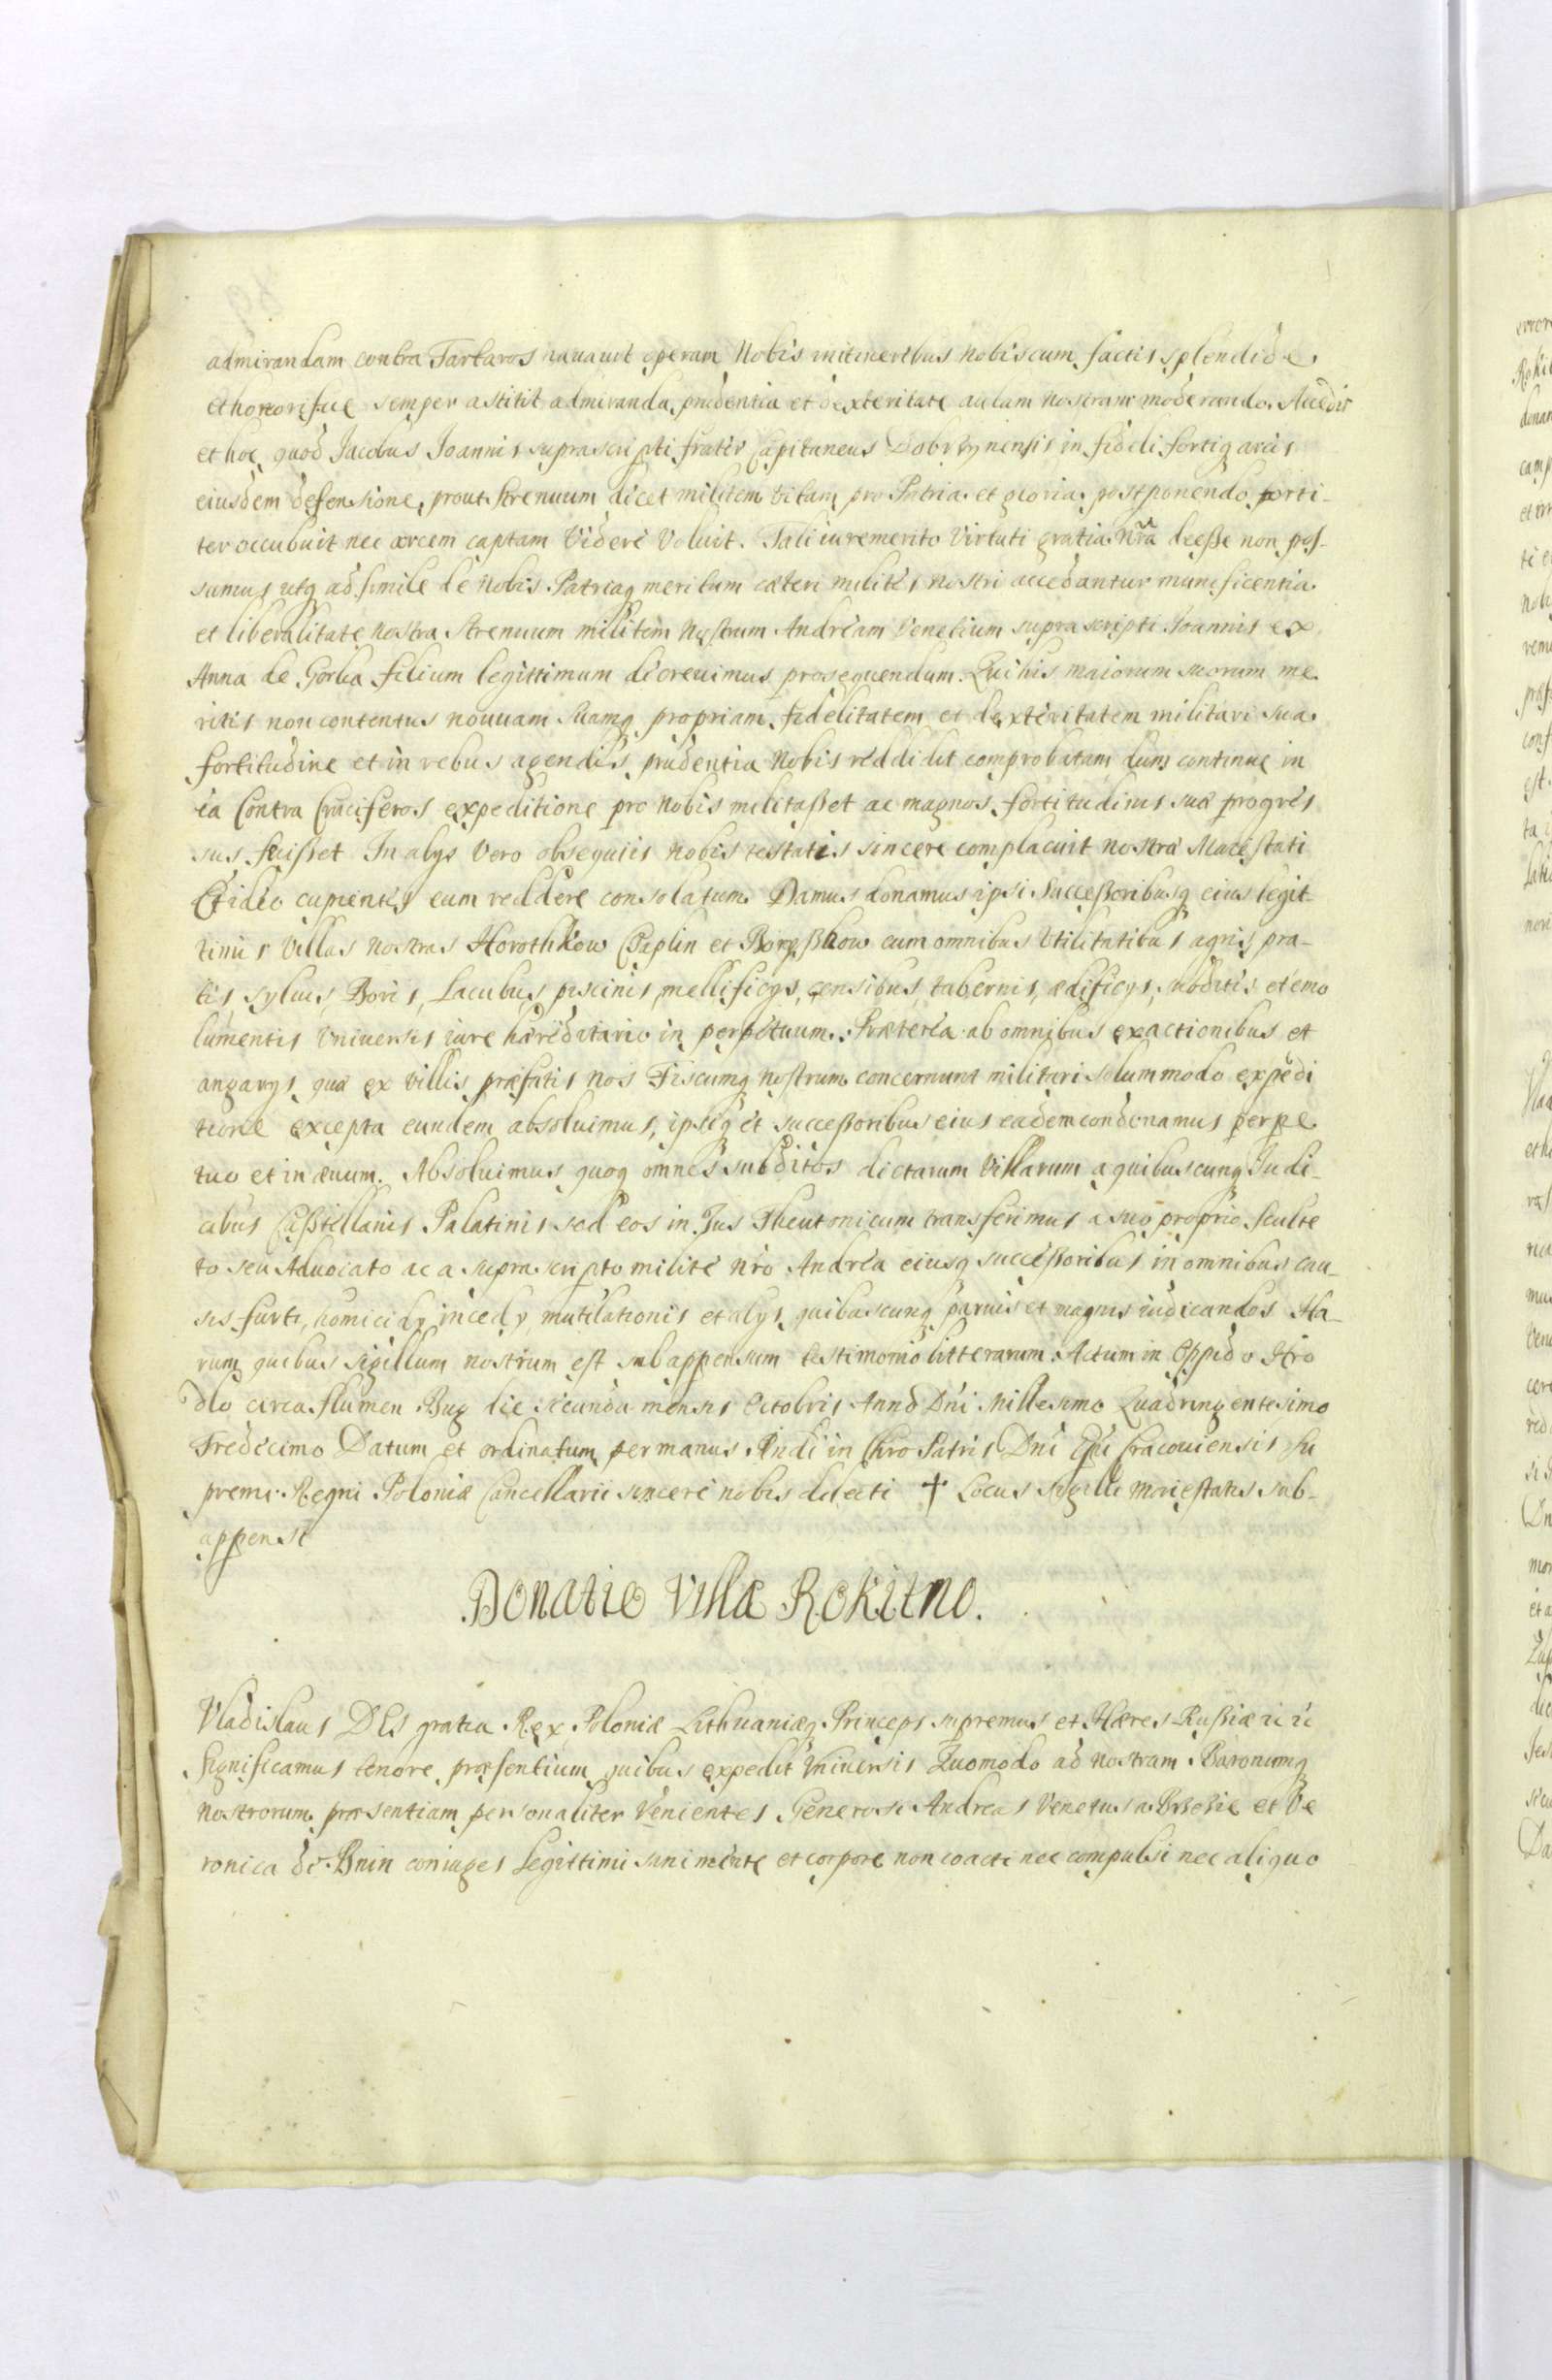 admirandam contra Tartaros nauauit operam Nobis initineribus nobiscum factis splendide
et honorifice semper astitit admiranda prudentia et dexteritate aulam nostram moderando. Accedit
et hoc quod Jacobus Joannis suprascripti frater Capitaneus Dobrzynensis in fideli fortiq arcis
eiusdem defensione, prout strenuum dicet militem vitam pro Patria et gloria postponendo forti-
ter occubuit nec arcem captam videre voluit. Tali iuremerito virtuti gratia nra deesse non pos-
sumus utq ad simile de nobis Patriaq meritum cæteri milites nostri accedantur munificentia
et liberalitate nostra strenuum militem nostrum Andream Venetium suprascripti Joannis ex
Anna de Gorka filium legittimum decreuimus prosequendum. Qui his maiorum suorum me
ritis non contentus nouuam suamq propriam fidelitatem et dexteritatem militari sua
fortitudine et in rebus agendis prudentia Nobis reddidit comprobatam dum continue in
ea Contra Cruciferos expeditione pro nobis militasset ac magnos fortitudinis suæ progres
sus fecisset In alys vero obsequiis nobis testatis sincere complacuit nostræ Maiestati
Et ideo cupientes eum reddere consolatum Damus donamus ipsi Successoribusq eius legit-
timis villas nostras Horothkow Czaplin et cum omnibus vtilitatibus agris, pra-
tis sylvis, Boris, Lacubus, piscinis, mellificys, censibus, tabernis, ædificys, subditis et emo
lumentis vniuersis iure hæreditario in perpetuum. Præterea ab omnibus exactionibus et
angarys quæ ex villis præfatis nos Fiscumq nostrum concernunt militari solummodo expedi
tione excepta eundem absoluimus, ipsiq et successoribus eius eadem condonamus perpe
tuo et in ævum. Absoluimus quoq omnes subditos dictarum villarum a quibuscunq Judi-
cibus Castellanis Palatinis sed eos in Jus Theutonicum transferimus a suo proprio Sculte
to seu Aduocato ac a suprascripto milite nro Andrea eiusq successoribus in omnibus cau-
sis furti, homicidy incedy mutilationis et alys quibuscunq paruis et magnis iudicandos Ha-
rum quibus sigillum nostrum est subappensum testimonio litterarum. Actum in Oppido Hro
dlo circa flumen Bug die secunda mensis Octobris Anno Dni Millesimo Quadringentesimo
Tredecimo Datum et ordinatum per manus Rndi in Chro Patris Dni Epi Cracouiensis Su
premi Regni Poloniæ Cancellarii sincere nobis dilecti ☩ Locus Sigilli Maiestatis sub-
appensi
Donatio Villæ Rokitno.
Vladislaus DEI gratia Rex Poloniæ Lithuaniæq Princeps supremus et Hæres Russiæ
Significamus tenore præsentium quibus expedit vniuersis Quomodo ad nostram Baronumq
nostrorum præsentiam personaliter venientes Generosi Andreas Venetus a et Ve
ronica de Bnin coniuges legittimi sani mente et corpore non coacti nec compulsi nec aliquo